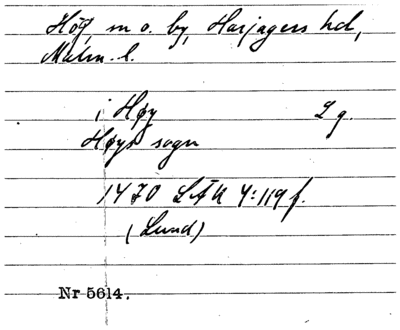 Hög, sn o. by, Harjagers hd,
Malm. l.
i Høy L g.
Høys sogn
1470 LÄU 4:119 f.
(Lund)
Nr 5614.